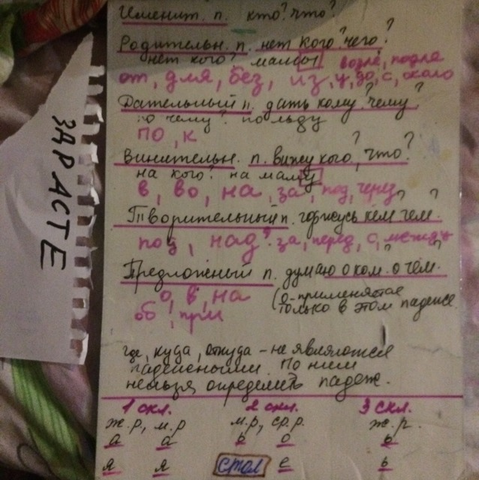 Именит п. кто? что?
Родительн. п. нет кого? чего?
нет кого? мамы возле, подле
от, для, без, из, у, до, с, около
Дательный п. дать кому? чему?
по чему? по льду
по, к
Винительн. п. вижу кого, что?
на кого? на маму
в, во, на, за, под, через
Творительный п. горжусь кем? чем?
под, над, за, перед, с, между
Предложный п. думаю о ком. о чём.
о, в, на (о-применяется
об, при только в этом падеже
где, куда, откуда - не являются
падежными. По ним
нельзя определять падеж.
1 скл. 2 скл. 3 скл.
ж.р, м.р м.р, ср.р. ж.р.
а а о ь
я я стол е ь
ЗДРАСТЕ